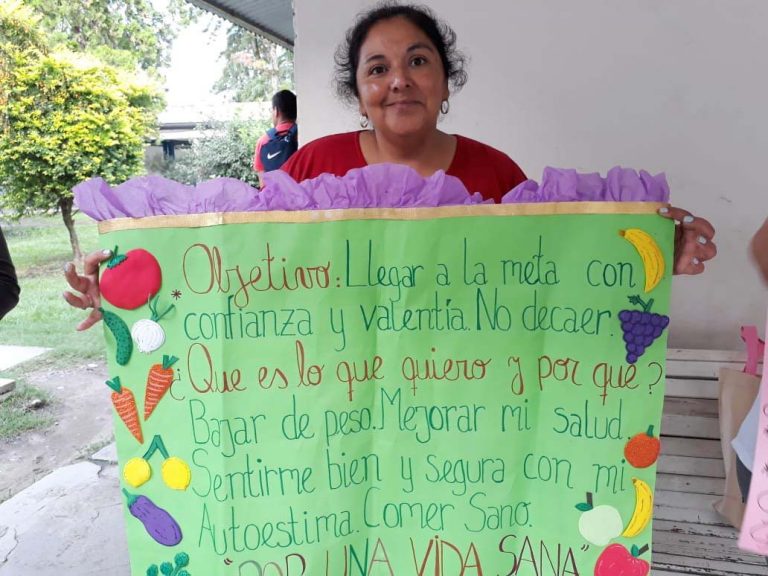 * Objetivo: Llegar a la meta con
confianza y valentía. No decaer.
¿Que es lo que quiero y por qué?
Bajar de peso. Mejorar mi salud.
Sentirme bien y segura con mi
Autoestima. Comer Sano.
"POR UNA VIDA SANA"